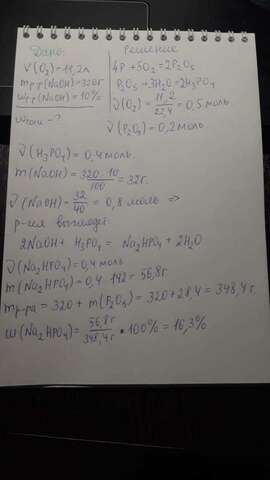 Дано:
V(O₂) = 11,2л
mр-р(NaOH) = 320г
ωр-р(NaOH) = 10%
ωсоли - ?
Решение
4P + 5O₂ = 2P₂O₅
P₂O₅ + 3H₂O = 2H₃PO₄
ν(O₂) = 11,2/22,4 = 0,5 моль
ν(P₂O₅) = 0,2 моль
ν(H₃PO₄) = 0,4 моль.
m(NaOH) = 320·10/100 = 32г.
ν(NaOH) = 32/40 = 0,8 моль ⇒
р-ция выглядит:
2NaOH + H₃PO₄ = Na₂HPO₄ + 2H₂O
ν(Na₂HPO₄) = 0,4 моль
m(Na₂HPO₄) = 0,4·142 = 56,8г.
mр-ра = 320 + m(P₂O₅) = 320 + 28,4 = 348,4г.
ω(Na₂HPO₄) = 56,8г/348,4г · 100% = 16,3%